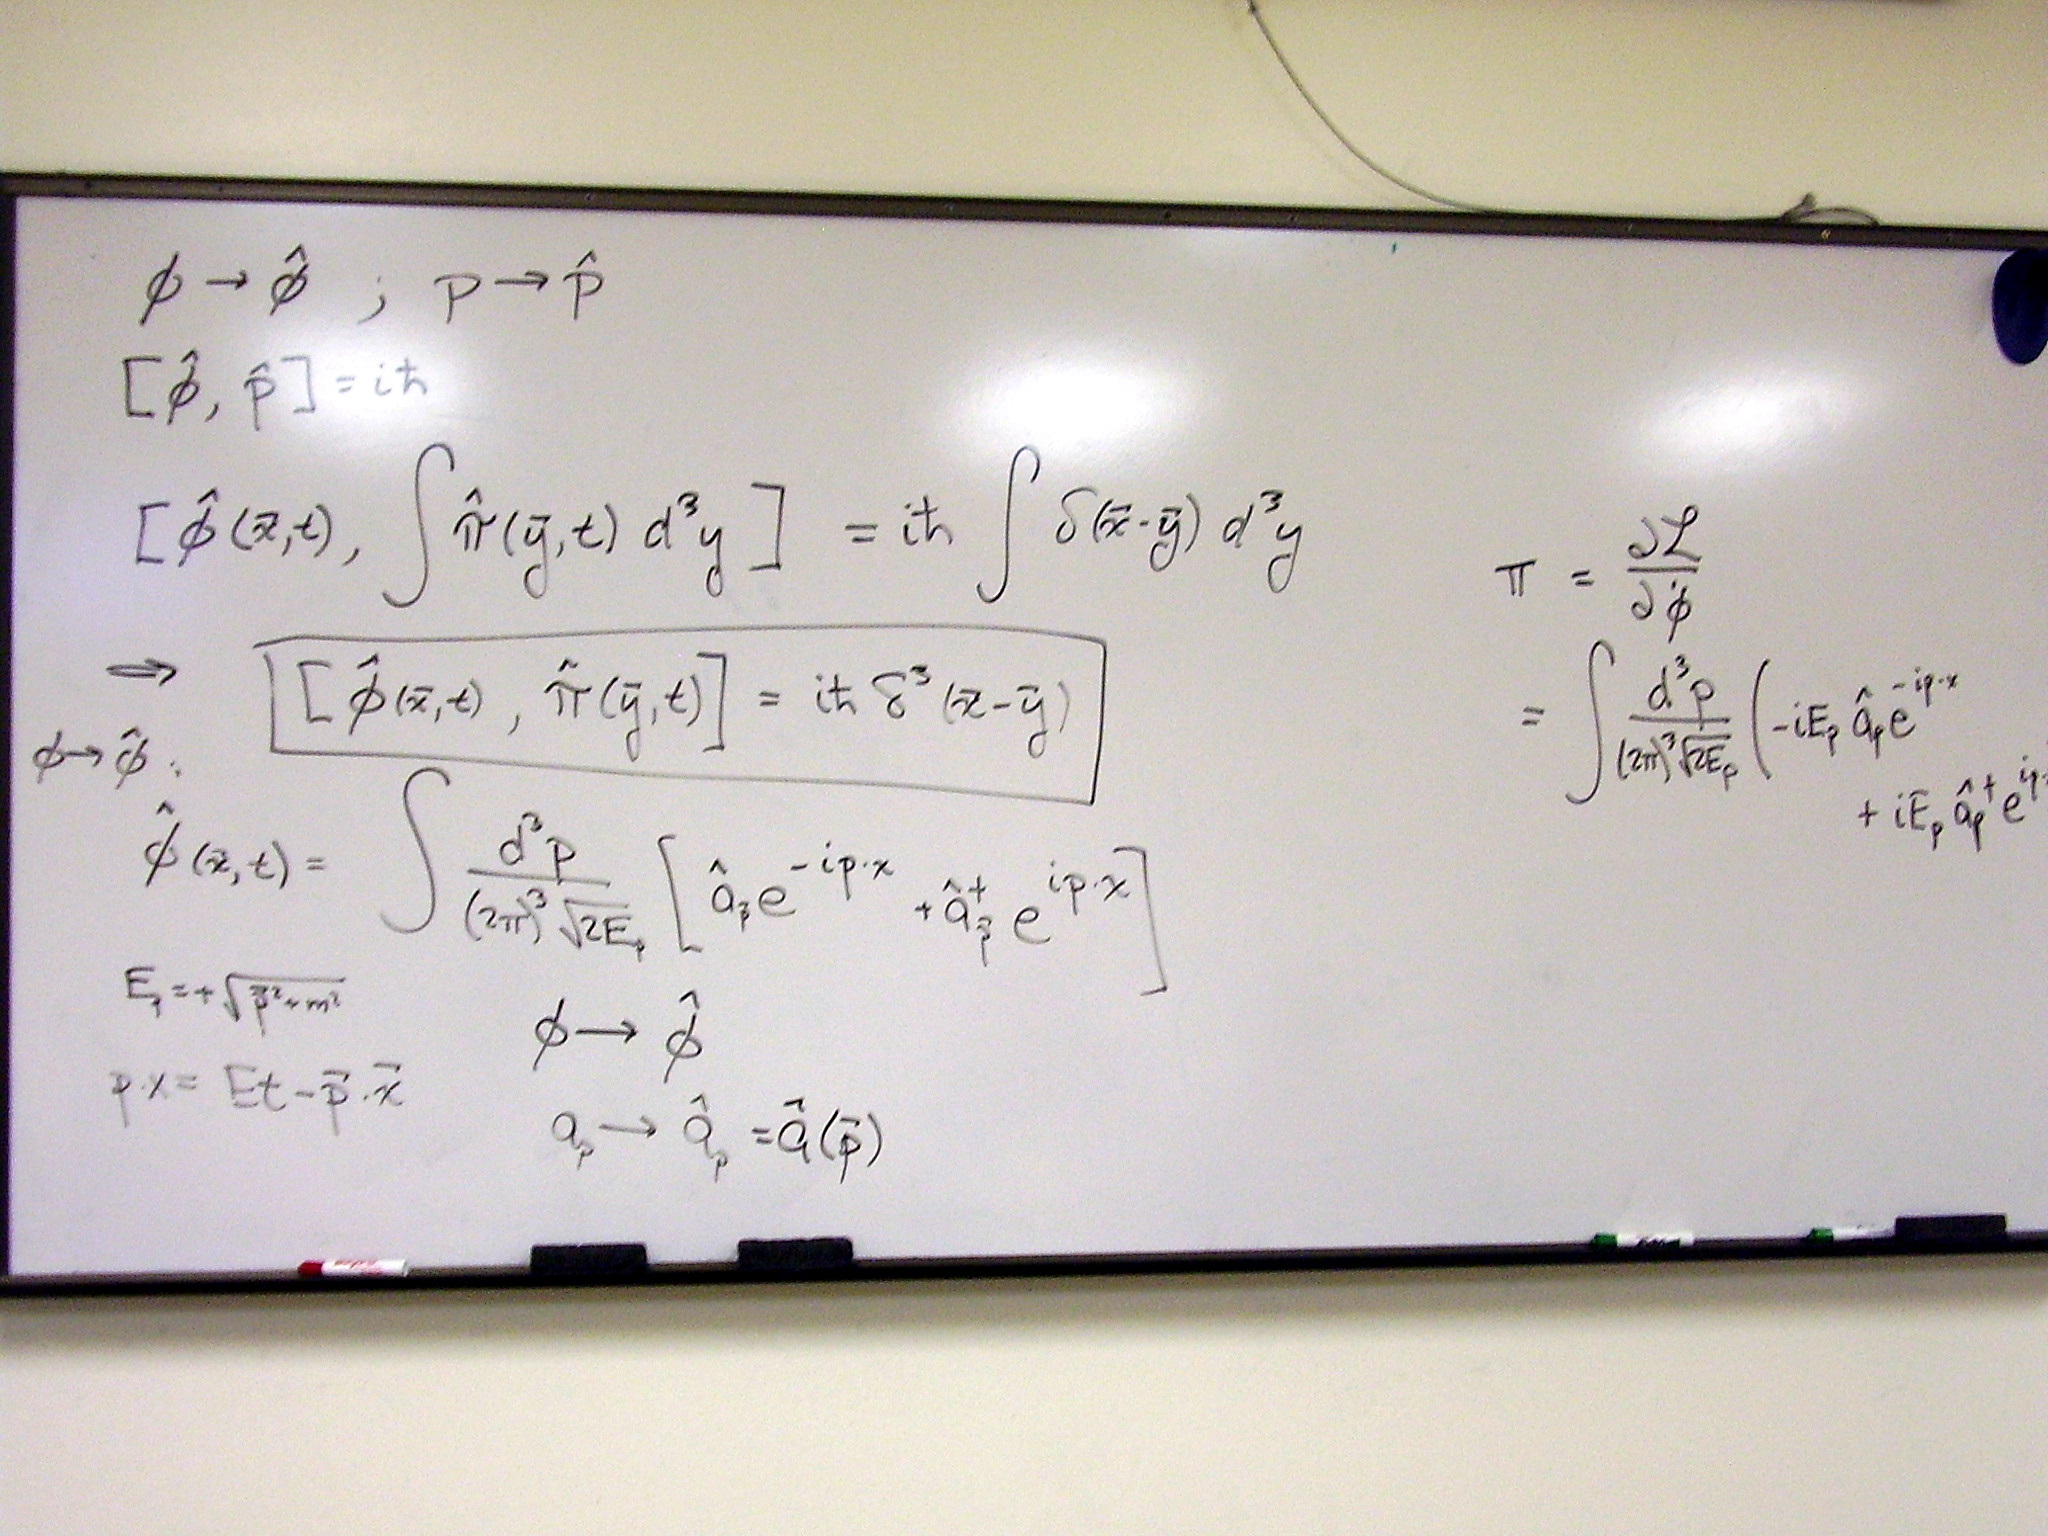 ϕ → ϕ̂ ; p → p̂
[ϕ̂, p̂] = iħ
[ϕ̂(x̄,t), ∫ π̂(ȳ,t) d³y] = iħ ∫ δ(x̄-ȳ) d³y
⇒ [ϕ̂(x̄,t), π̂(ȳ,t)] = iħ δ³(x̄-ȳ)
ϕ → ϕ̂ :
ϕ̂(x̄,t) = ∫ d³p / ((2π)³ √2E_p) [â_p̄ e^{-ip·x} + â_p̄^† e^{ip·x}]
E_p = +√(p̄²+m²)
p·x = Et - p̄·x̄
ϕ → ϕ̂
a_p → â_p = â(p̄)
π = ∂ℒ/∂ϕ̇
= ∫ d³p / ((2π)³ √2E_p) (-iE_p â_p e^{-ip·x}
+ iE_p â_p^† e^{ip·